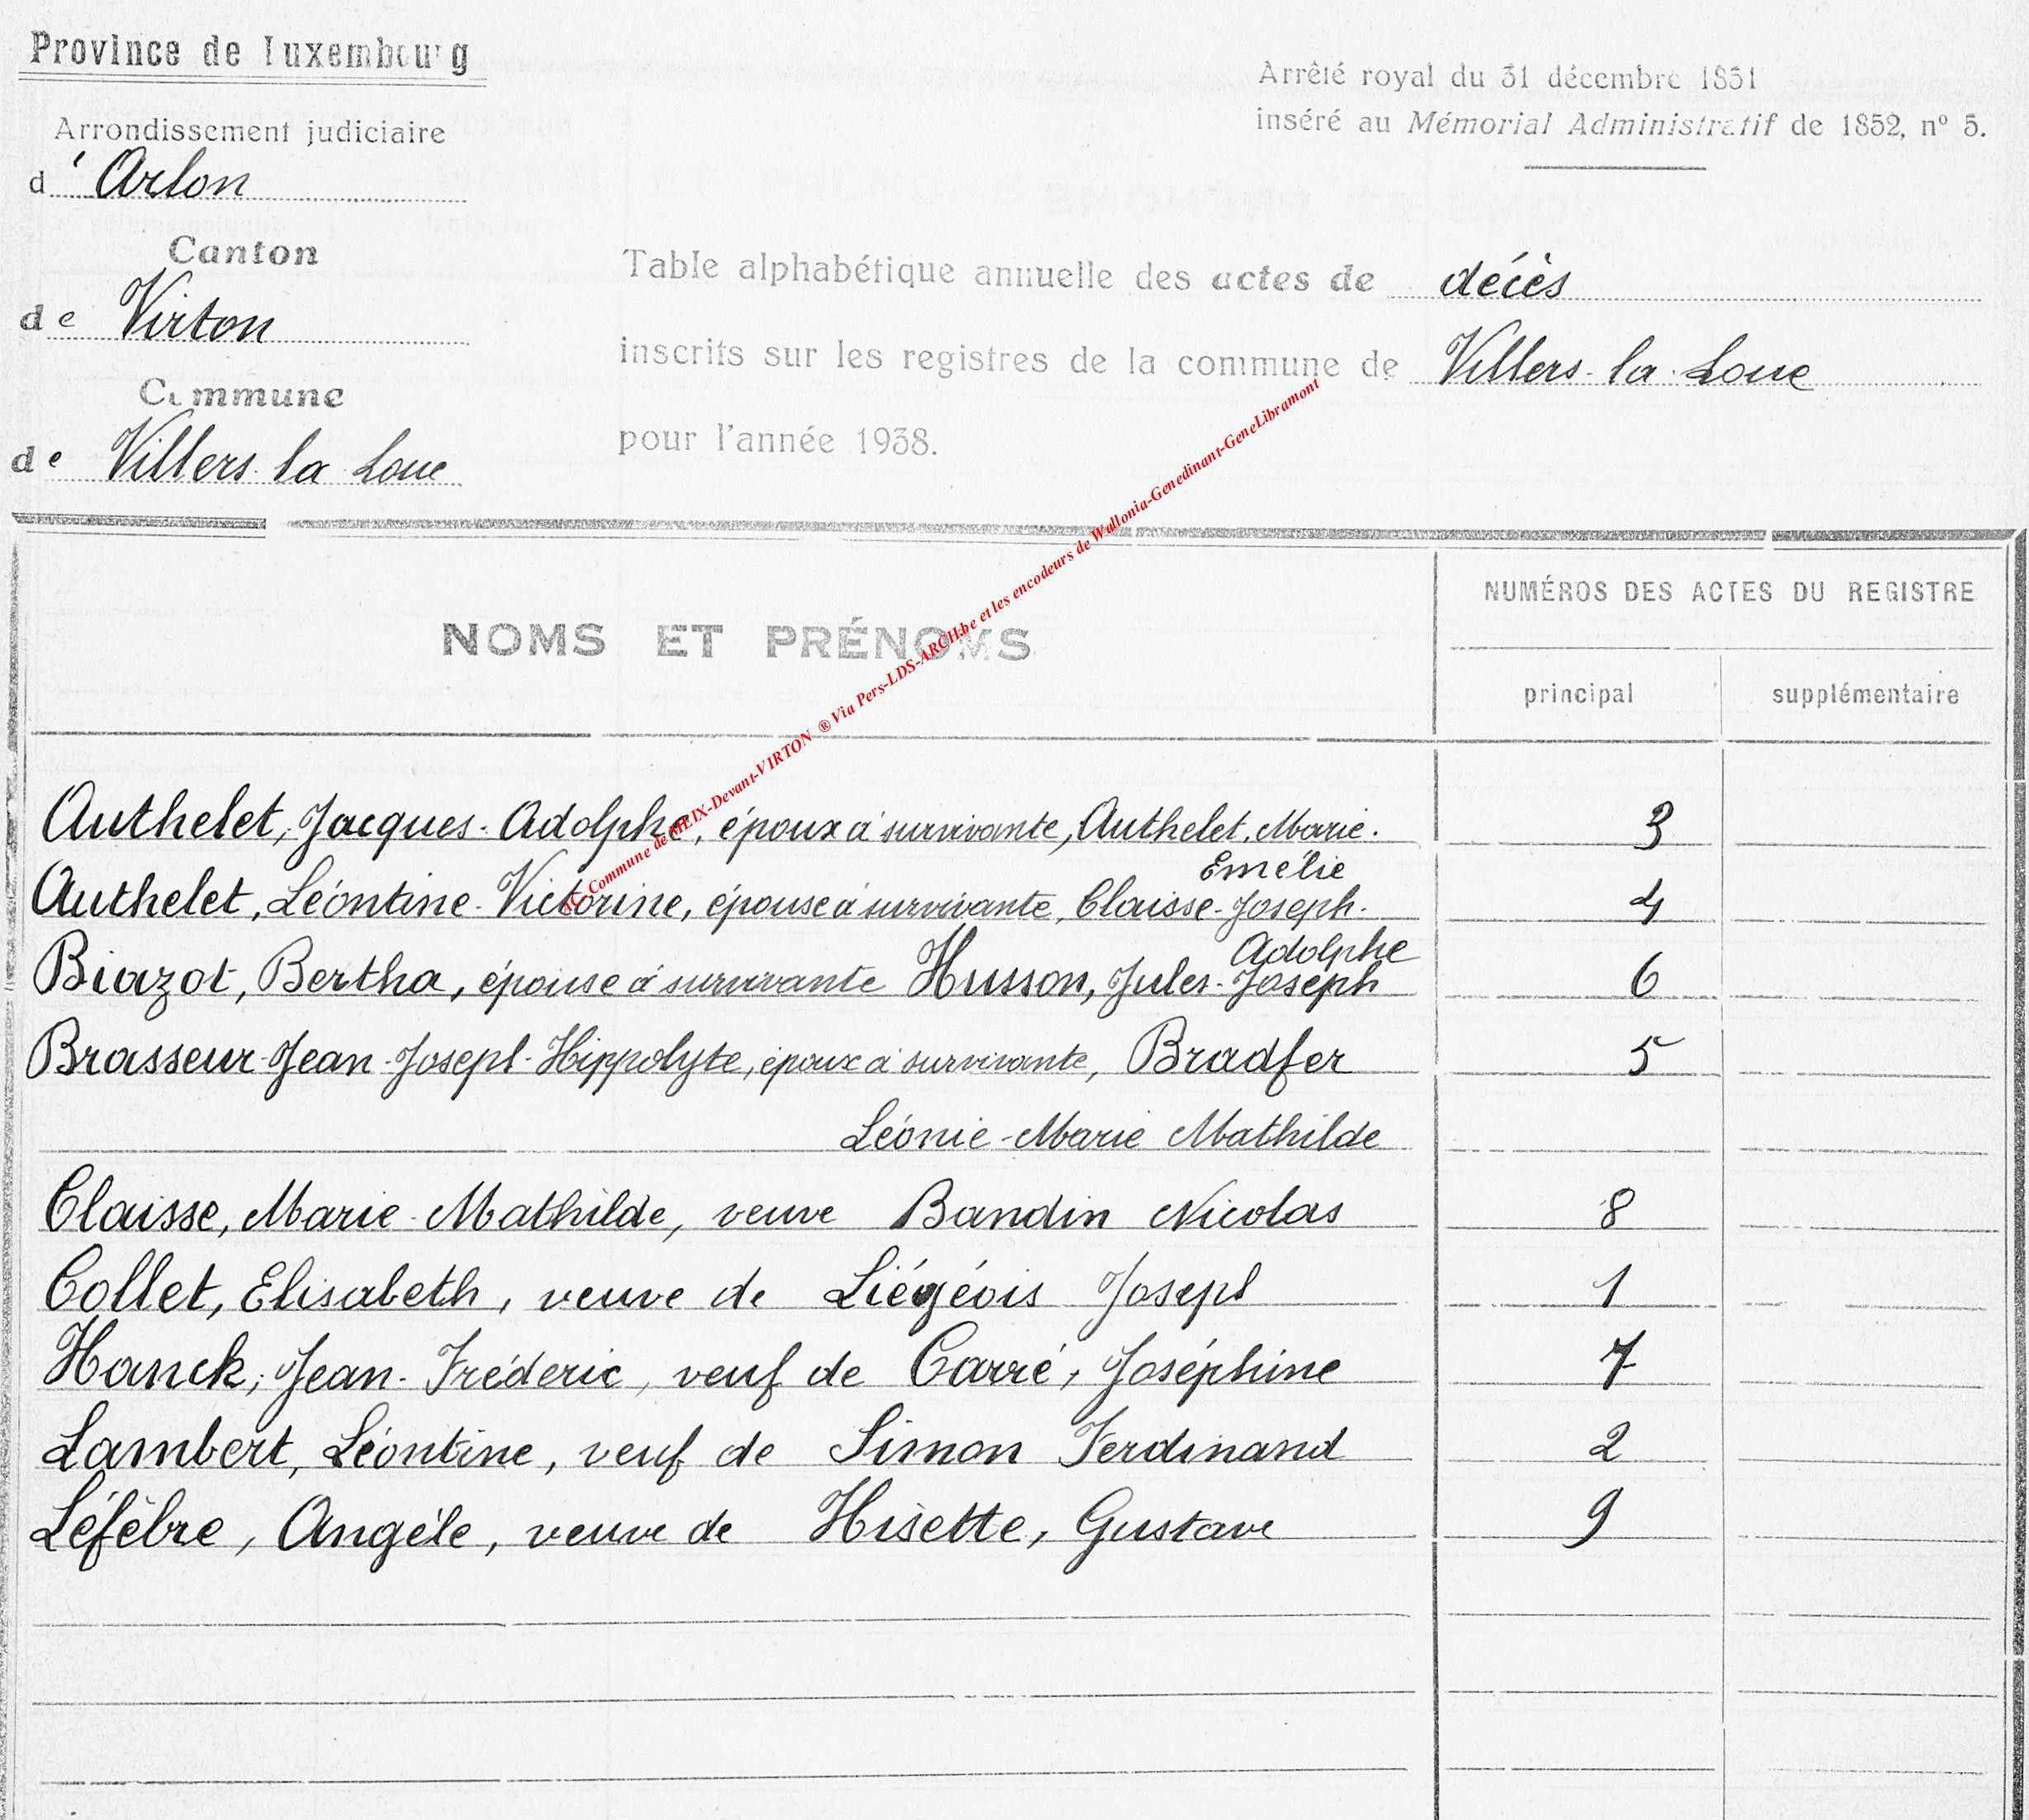 Province de Luxembourg
Arrêté royal du 31 décembre 1831
inséré au Mémorial Administratif de 1852, n° 5.
Arrondissement judiciaire
d'Arlon
Canton
de Virton
Commune
de Villers-la-Loue
Table alphabétique annuelle des actes de décès
inscrits sur les registres de la commune de Villers-la-Loue
pour l'année 1938.
NOMS ET PRÉNOMS
NUMÉROS DES ACTES DU REGISTRE
principal supplémentaire
Authelet, Jacques-Adolphe, époux à survivante, Authelet, Marie. 3
Emélie
Authelet, Léontine-Victorine, épouse à survivante, Claisse-Joseph. 4
Adolphe
Biazot, Bertha, épouse à survivante Husson, Jules-Joseph 6
Brasseur-Jean-Joseph-Hippolyte, époux à survivante, Bradfer 5
Léonie-Marie Mathilde
Claisse, Marie-Mathilde, veuve Bandin Nicolas 8
Collet, Elisabeth, veuve de Liégéois Joseph 1
Hanck, Jean-Fréderic, veuf de Carré, Joséphine 7
Lambert, Léontine, veuf de Simon Ferdinand 2
Léfèbre, Angéle, veuve de Hisette, Gustave 9
Commune de MEIX-Devant-VIRTON ® Via Pers-LDS-ARCH.be et les encodeurs de Wallonia-Genedinant-GeneLibramont